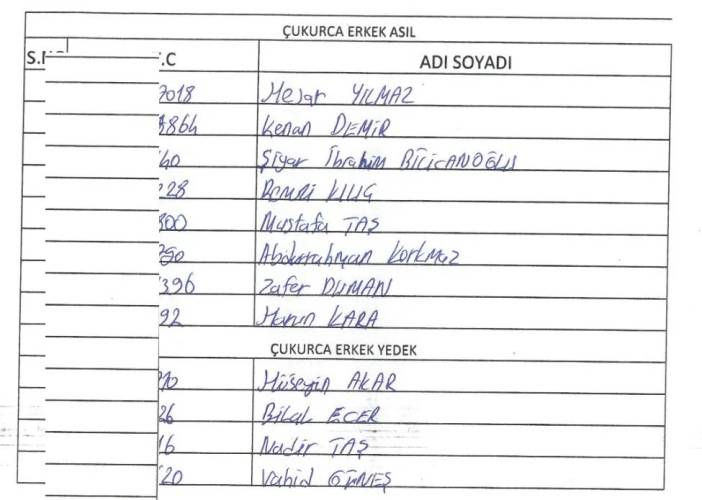 ÇUKURCA ERKEK ASIL
S.N .C ADI SOYADI
7018 Hejar YILMAZ
8864 Kenan DEMİR
40 Şiyar İbrahim BİLİCANOĞLU
228 Remzi KILIÇ
800 Mustafa TAŞ
290 Abdurrahman Korkmaz
396 Zafer DUMAN
92 Harun KARA
ÇUKURCA ERKEK YEDEK
70 Hüseyin AKAR
26 Bilal ECER
16 Nadir TAŞ
20 Vahid GÜNEŞ